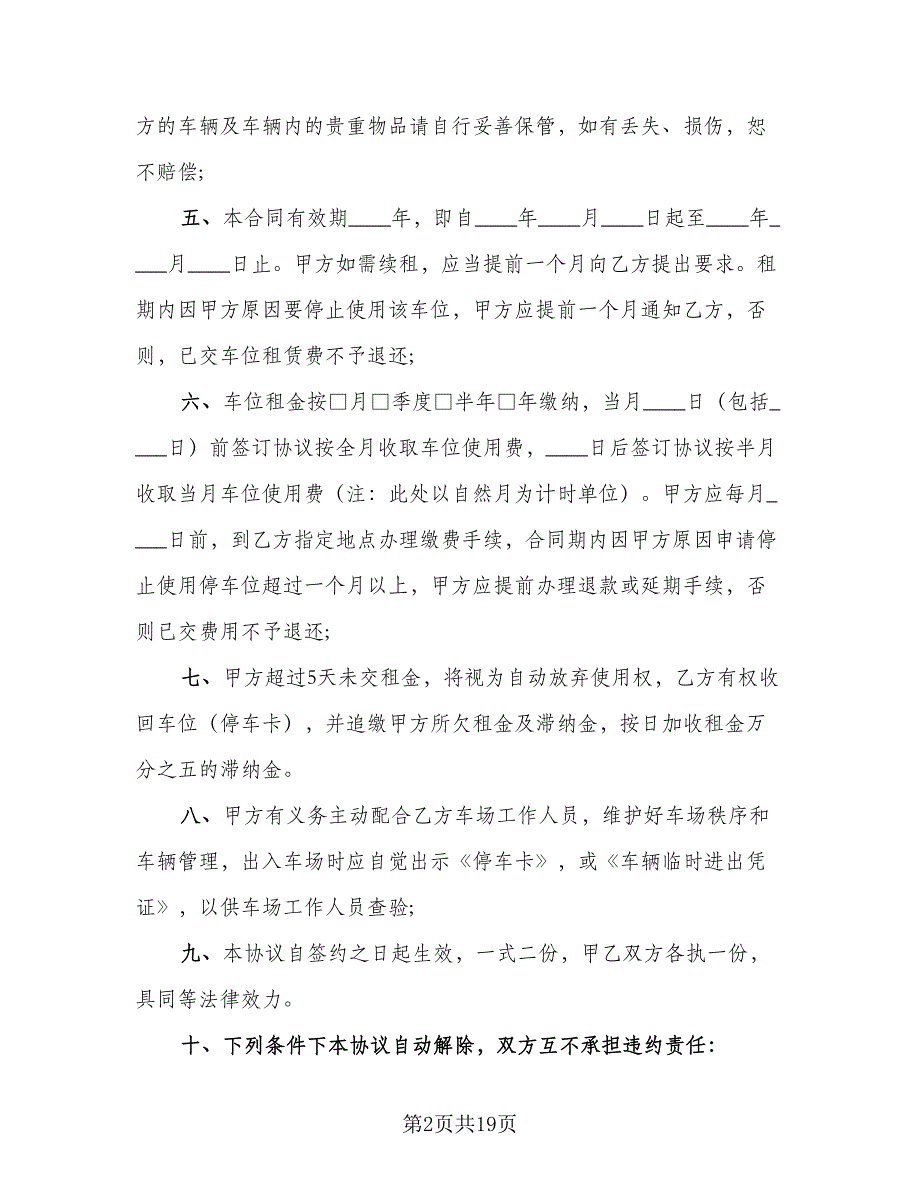 方的车辆及车辆内的贵重物品请自行妥善保管，如有丢失、损伤，恕
不赔偿;
五、本合同有效期____年，即自____年____月____日起至____年_
___月____日止。甲方如需续租，应当提前一个月向乙方提出要求。租
期内因甲方原因要停止使用该车位，甲方应提前一个月通知乙方，否
则，已交车位租赁费不予退还;
六、车位租金按□月□季度□半年□年缴纳，当月____日（包括_
___日）前签订协议按全月收取车位使用费，____日后签订协议按半月
收取当月车位使用费（注：此处以自然月为计时单位）。甲方应每月_
___日前，到乙方指定地点办理缴费手续，合同期内因甲方原因申请停
止使用停车位超过一个月以上，甲方应提前办理退款或延期手续，否
则已交费用不予退还;
七、甲方超过5天未交租金，将视为自动放弃使用权，乙方有权收
回车位（停车卡），并追缴甲方所欠租金及滞纳金，按日加收租金万
分之五的滞纳金。
八、甲方有义务主动配合乙方车场工作人员，维护好车场秩序和
车辆管理，出入车场时应自觉出示《停车卡》，或《车辆临时进出凭
证》，以供车场工作人员查验;
九、本协议自签约之日起生效，一式二份，甲乙双方各执一份，
具同等法律效力。
十、下列条件下本协议自动解除，双方互不承担违约责任：
第2页共19页